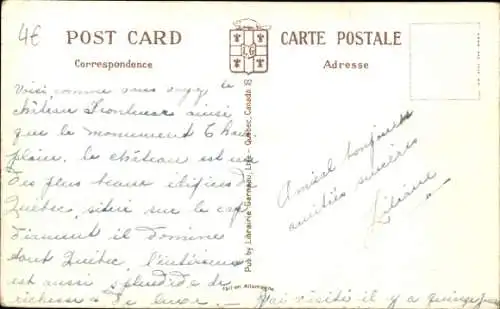 4€
POST CARD
CARTE POSTALE
Correspondence
Adresse
LG
Voisi comme vous voyez le
château Frontenac ainsi
que le monument Champ
plain, le château est un
des plus beaux édifices de
Québec, situer sur le cap
Diamant il domine
tout Québec, l'intérieur
est aussi splendide de
richesse de luxe. - J'ai visité il y a quinze jours
Pub by Librairie Garneau, Ltée - Québec, Canada
Fait en Allemagne
Amical toujours
amitiés sincères
Liliane